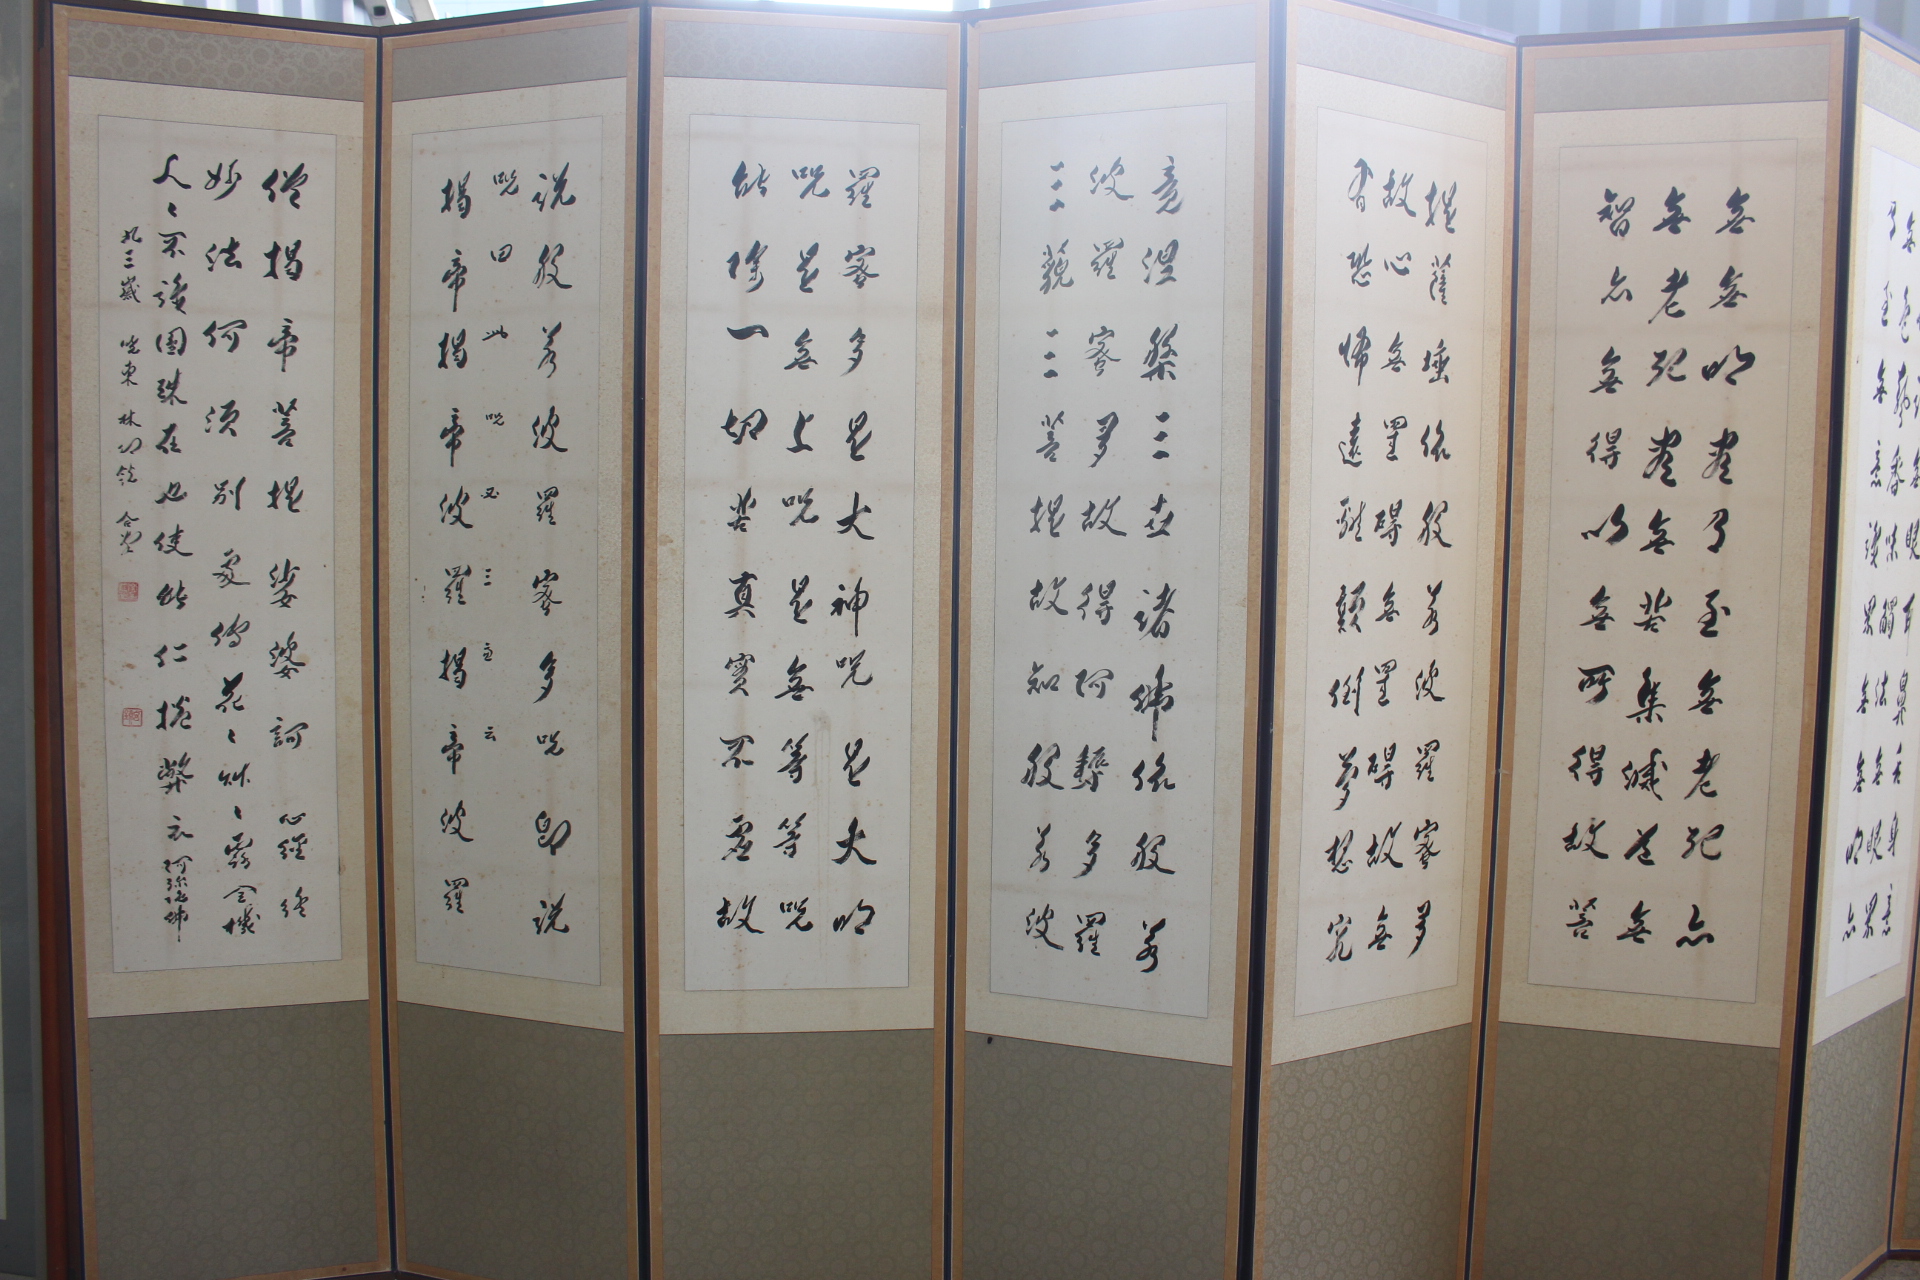 無色聲香味觸法無眼界
乃至無意識界無無明亦
無無明盡乃至無老死亦
無老死盡無苦集滅道無
智亦無得以無所得故菩
提薩埵依般若波羅蜜多
故心無罣碍無罣碍故無
有恐怖遠離顚倒夢想究
竟涅槃三世諸佛依般若
波羅蜜多故得阿耨多羅
三藐三菩提故知般若波
羅蜜多是大神呪是大明
呪是無上呪是無等等呪
能除一切苦真實不虛故
說般若波羅蜜多呪卽說
呪曰 此呪
揭帝揭帝波羅揭帝波羅
僧揭帝菩提娑婆訶 心經終
妙法何須別處傳花〻艸〻露全機
人〻不識圓珠在也使能仁捲弊衣 阿彌陀佛
九三歲 曉東 林